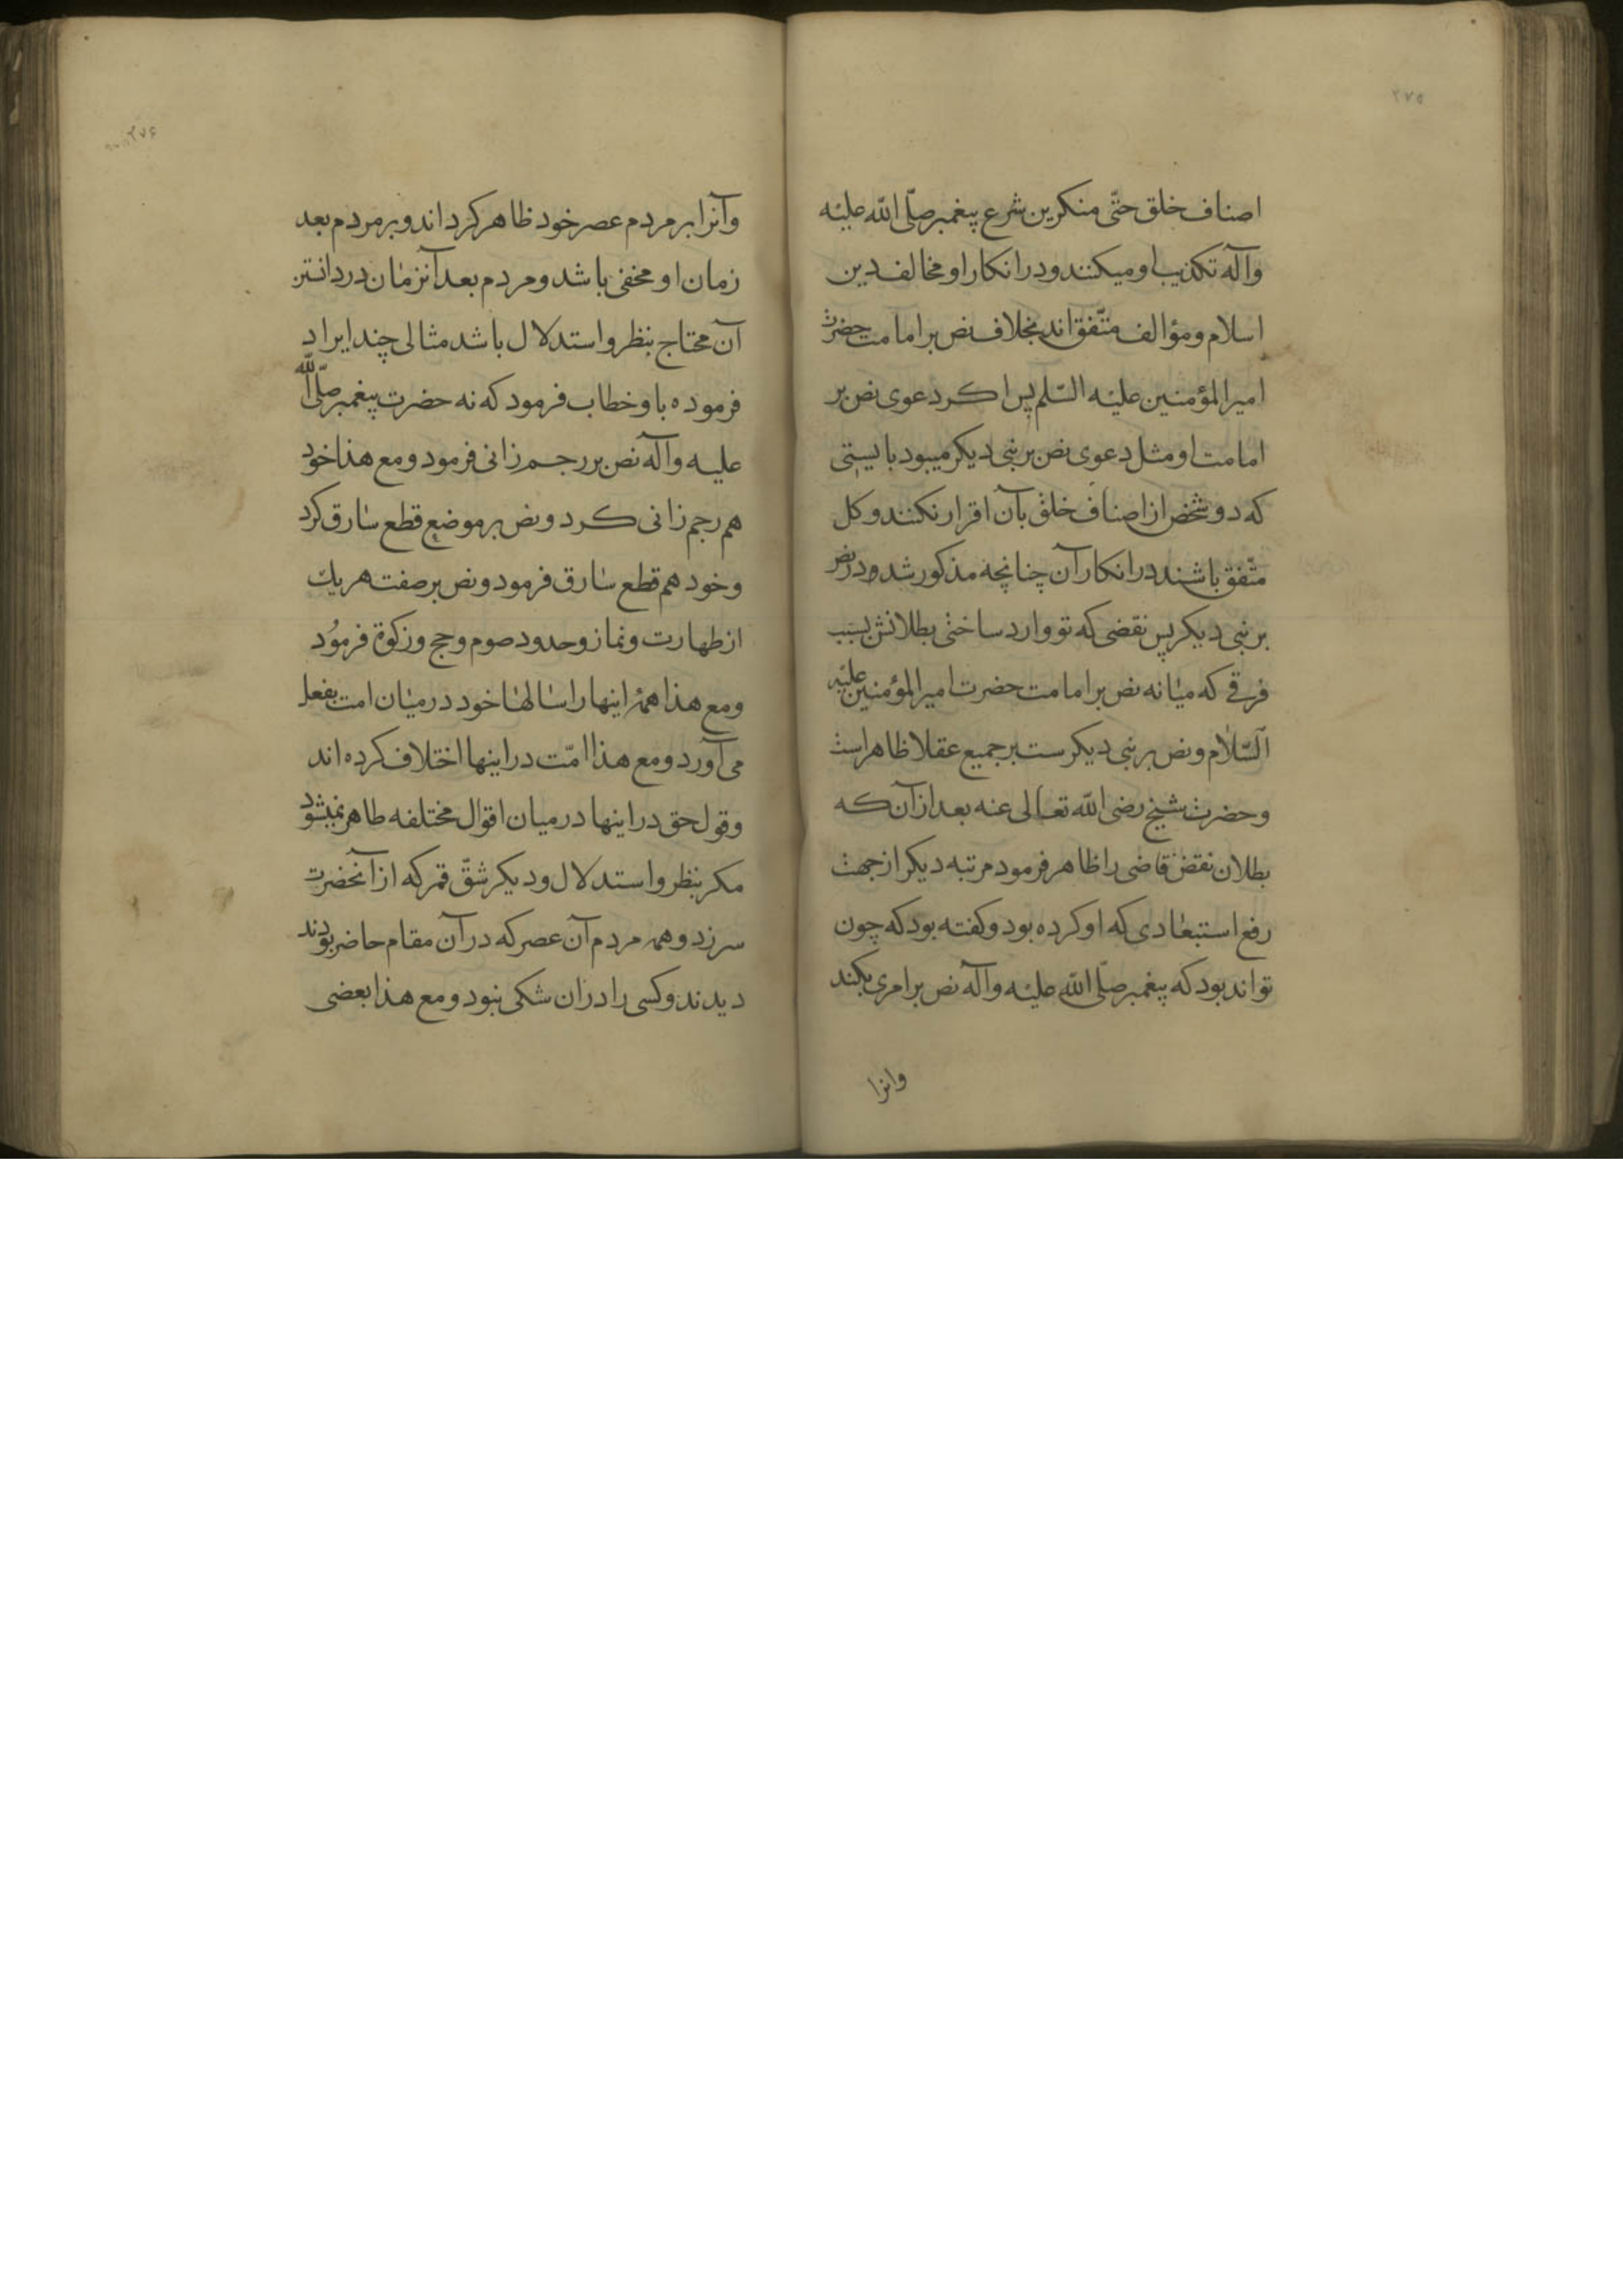 ۲۷۵
اصناف خلق حتّی منکرین شرع پیغمبر صلّی اللّه علیْه
وآله تکذیب او میکنند و در انکار او مخالف دین
اسلام و مؤالف متّفق اند بخلاف نص بر امامت حضرت
امیرالمؤمنین علیْه السّلم پس اکر دعوی نص بر
امامت او مثل دعوی نص بر نبی دیکر میبود بایستی
که دو شخص از اصناف خلق بآن اقرار نکنند و کل
متّفق باشند در انکار آن چنانچه مذکور شد در نص
بر نبی دیکر پس نقضی که تو وارد ساختی بطلانش بسبب
فرقی که میانه نص بر امامت حضرت امیرالمؤمنین علیْه
السّلام و نص بر نبی دیکرست بر جمیع عقلا ظاهر است
و حضرت شیخ رضی اللّه تعالی عنه بعد از آن که
بطلان نقض قاضی را ظاهر فرمود مرتبه دیکر از جهت
رفع استبعادی که او کرده بود و کفته بود که چون
تواند بود که پیغمبر صلّی اللّه علیْه وآله نص بر امری بکند
وانرا
۲۷۶
وآنرا بر مردم عصر خود ظاهر کرداند و بر مردم بعد
زمان او مخفی باشد و مردم بعد آنزمان در دانستن
آن محتاج بنظر و استدلال باشد مثالی چند ایراد
فرموده باو خطاب فرمود که نه حضرت پیغمبر صلّی اللّه
علیه وآله نص بر رجم زانی فرمود و مع هذا خود
هم رجم زانی کرد و نص بر موضع قطع سارق کرد
و خود هم قطع سارق فرمود و نص بر صفت هریك
از طهارت و نماز و حدود صوم و حج و زکوة فرمُود
و مع هذا همهٔ اینها را سالها خود در میان امت بفعل
می آورد و مع هذا امّت در اینها اختلاف کرده اند
و قول حق در اینها در میان اقوال مختلفه ظاهر نمیشود
مکر بنظر و استدلال و دیکر شقّ قمر که از آنحضرت
سر زد و همه مردم آن عصر که در آن مقام حاضر بودند
دیدند و کسی را در ان شکی نبود و مع هذا بعضی